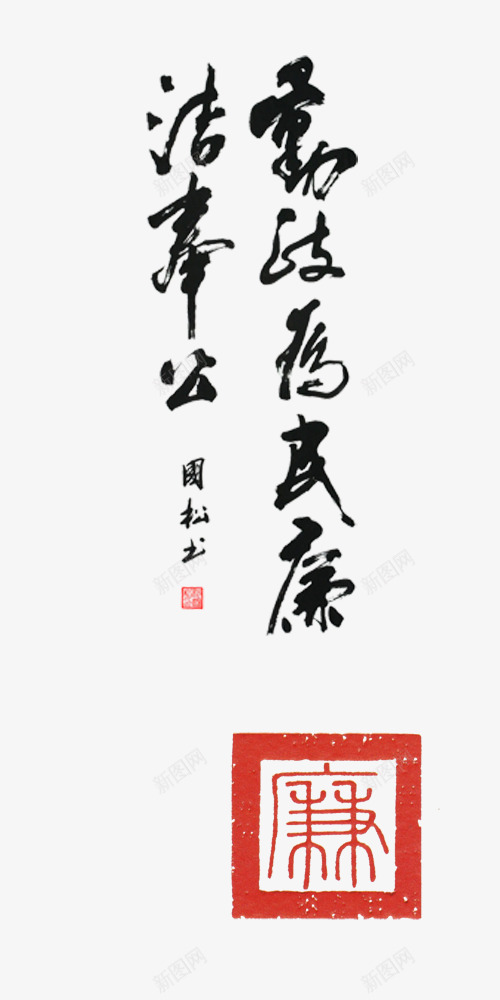 勤政為民廉
洁奉公
國松书
廉
新图网
新图网
新图网
新图网
新图网
新图网
新图网
新图网
新图网
新图网